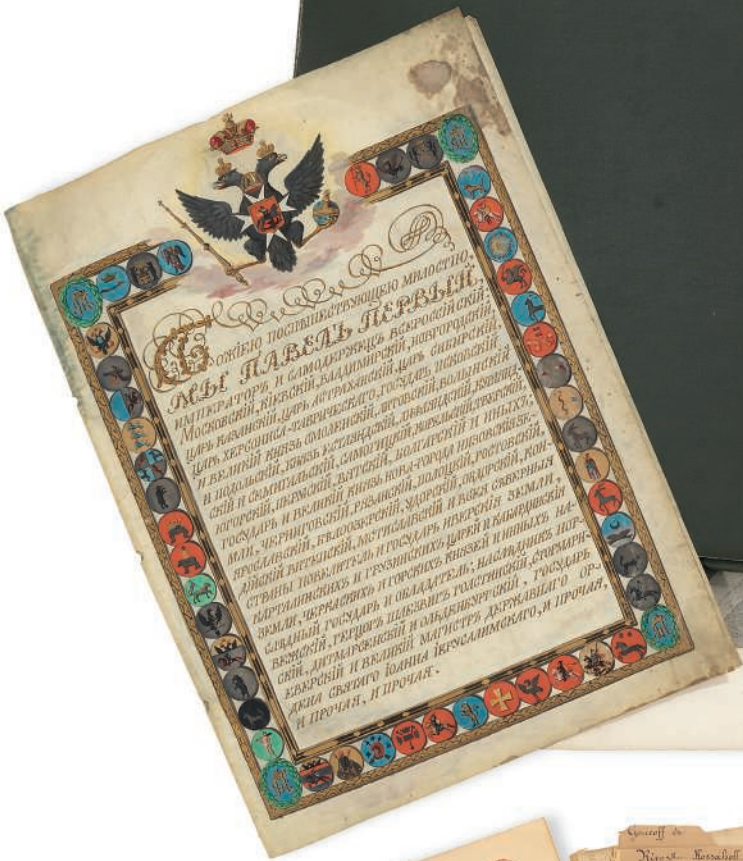 БОЖІЕЮ ПОСПѢШЕСТВУЮЩЕЮ МИЛОСТІЮ,
МЫ ПАВЕЛЪ ПЕРВЫЙ,
ИМПЕРАТОРЪ И САМОДЕРЖЕЦЪ ВСЕРОССІЙСКІЙ:
МОСКОВСКІЙ, КІЕВСКІЙ, ВЛАДИМИРСКІЙ, НОВГОРОДСКІЙ,
ЦАРЬ КАЗАНСКІЙ, ЦАРЬ АСТРАХАНСКІЙ, ЦАРЬ СИБИРСКІЙ,
ЦАРЬ ХЕРСОНИСА-ТАВРИЧЕСКАГО, ГОСУДАРЬ ПСКОВСКІЙ
И ВЕЛИКІЙ КНЯЗЬ СМОЛЕНСКІЙ, ЛИТОВСКІЙ, ВОЛЫНСКІЙ
И ПОДОЛЬСКІЙ, КНЯЗЬ ЕСТЛЯНДСКІЙ, ЛИФЛЯНДСКІЙ, КУРЛЯНД-
СКІЙ И СЕМИГАЛЬСКІЙ, САМОГИЦКІЙ, КОРЕЛЬСКІЙ, ТВЕРСКІЙ,
ЮГОРСКІЙ, ПЕРМСКІЙ, ВЯТСКІЙ, БОЛГАРСКІЙ И ИНЫХЪ;
ГОСУДАРЬ И ВЕЛИКІЙ КНЯЗЬ НОВА-ГОРОДА НИЗОВСКІЯ ЗЕ-
МЛИ, ЧЕРНИГОВСКІЙ, РЯЗАНСКІЙ, ПОЛОЦКІЙ, РОСТОВСКІЙ,
ЯРОСЛАВСКІЙ, БѢЛООЗЕРСКІЙ, УДОРСКІЙ, ОБДОРСКІЙ, КОН-
ДІЙСКІЙ, ВИТЕПСКІЙ, МСТИСЛАВСКІЙ И ВСЕЯ СѢВЕРНЫЯ
СТРАНЫ ПОВЕЛИТЕЛЬ И ГОСУДАРЬ ИВЕРСКІЯ ЗЕМЛИ,
КАРТАЛИНСКИХЪ И ГРУЗИНСКИХЪ ЦАРЕЙ И КАБАРДИНСКІЯ
ЗЕМЛИ, ЧЕРКАСКИХЪ И ГОРСКИХЪ КНЯЗЕЙ И ИНЫХЪ НА-
СЛѢДНЫЙ ГОСУДАРЬ И ОБЛАДАТЕЛЬ; НАСЛѢДНИКЪ НОР-
ВЕЖСКІЙ, ГЕРЦОГЪ ШЛЕЗВИГЪ ГОЛСТИНСКІЙ, СТОРМАРН-
СКІЙ, ДИТМАРСЕНСКІЙ И ОЛЬДЕНБУРГСКІЙ, ГОСУДАРЬ
ЕВЕРСКІЙ И ВЕЛИКІЙ МАГИСТРЪ ДЕРЖАВНАГО ОР-
ДЕНА СВЯТАГО ІОАННА ІЕРУСАЛИМСКАГО, И ПРОЧАЯ,
И ПРОЧАЯ, И ПРОЧАЯ.